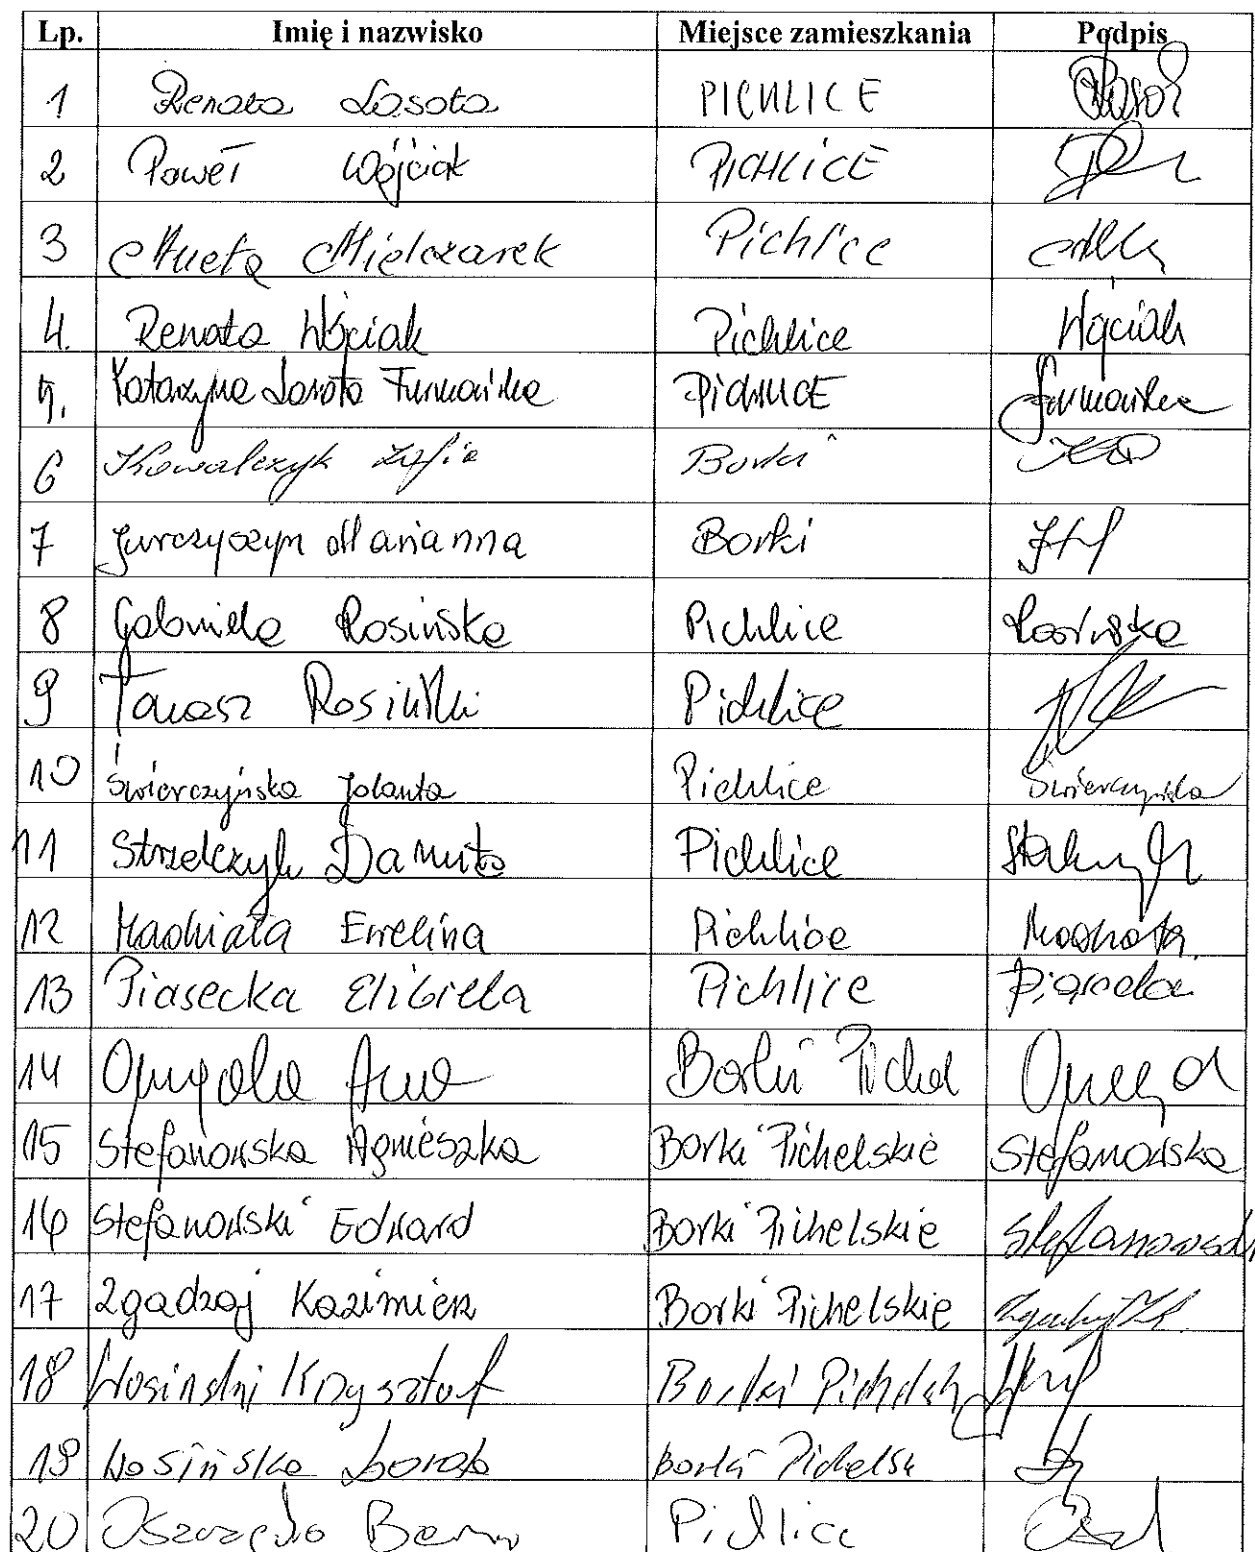 Lp. Imię i nazwisko Miejsce zamieszkania Podpis
1 Renata Lasota PICHLICE
2 Paweł Wójciak PICHLICE
3 Aneta Mielczarek Pichlice
4. Renata Wójciak Pichlice Wójciak
5. Katarzyna Lasota Furmańska PICHLICE Furmańska
6 Kowalczyk Zofia Borki
7 Jurczyszyn Marianna Borki
8 Gabriela Rosińska Pichlice Rosińska
9 Tomasz Rosiński Pichlice
10 Świerczyńska Jolanta Pichlice Świerczyńska
11 Strzelczyk Danuta Pichlice
12 Machiała Ewelina Pichlice
13 Piasecka Elżbieta Pichlice Piasecka
14 Borki Pichel
15 Stefanowska Agnieszka Borki Pichelskie Stefanowska
16 Stefanowski Edward Borki Pichelskie Stefanowski
17 Zgadzaj Kazimierz Borki Pichelskie
18 Wosiński Krzysztof Borki Pichelsk
19 Wosińska Dorota Borki Pichelsk
20 Pichlice